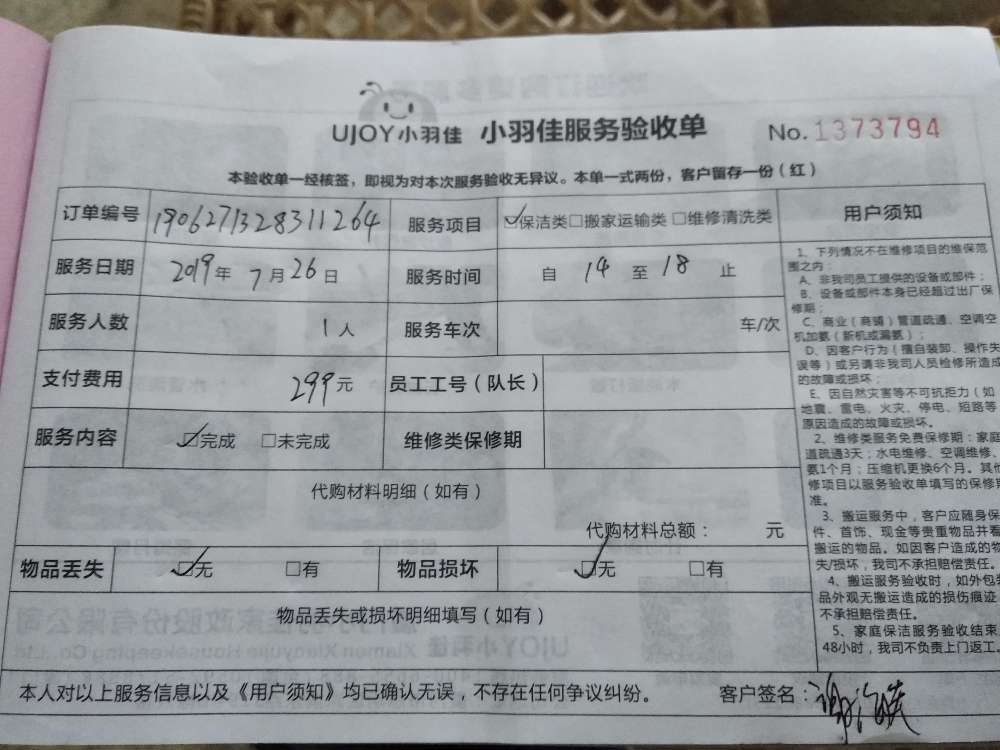 UJOY小羽佳 小羽佳服务验收单 No.1373794
本验收单一经核签，即视为对本次服务验收无异议。本单一式两份，客户留存一份（红）
订单编号 1906271328311264 服务项目 ☑保洁类□搬家运输类□维修清洗类
服务日期 2019年 7月26日 服务时间 自 14 至 18 止
服务人数 1人 服务车次 车/次
支付费用 299元 员工工号（队长）
服务内容 ☑完成 □未完成 维修类保修期
代购材料明细（如有）
代购材料总额： 元
物品丢失 ☑无 □有 物品损坏 ☑无 □有
物品丢失或损坏明细填写（如有）
本人对以上服务信息以及《用户须知》均已确认无误，不存在任何争议纠纷。 客户签名：
用户须知
1、下列情况不在维修项目的维保范
围之内：
A、非我司员工提供的设备或部件；
B、设备或部件本身已经超过出厂保
修期；
C、商业（商铺）管道疏通、空调空
机加氨（新机或漏氨）；
D、因客户行为（擅自装卸、操作失
误等）或另请非我司人员检修所造成
的故障或损坏；
E、因自然灾害等不可抗拒力（如
地震、雷电、火灾、停电、短路等
原因造成的故障或损坏。
2、维修类服务免费保修期：家庭
道疏通3天；水电维修、空调维修、
氨1个月；压缩机更换6个月。其他
修项目以服务验收单填写的保修期
准。
3、搬运服务中，客户应随身保
件、首饰、现金等贵重物品并看
搬运的物品。如因客户造成的物
失/损坏，我司不承担赔偿责任。
4、搬运服务验收时，如外包装
品外观无搬运造成的损伤痕迹
不承担赔偿责任。
5、家庭保洁服务验收结束
48小时，我司不负责上门返工。